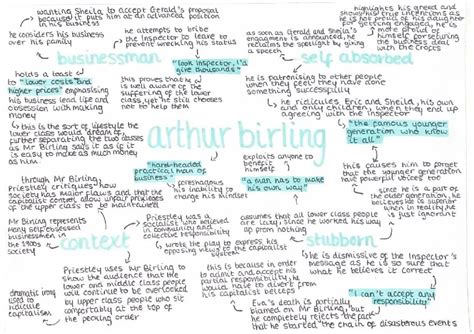 wanting Sheila to accept Gerald's proposal
because it puts him at an advanced position
in his business
he considers his business
over his family
businessman
he attempts to bribe
the Inspector to leave to
prevent wrecking his status
"look inspector, I'd
give thousands"
this proves that he
is well aware of the
suffering of the lower
class, yet he still chooses
not to help them
holds a toast
to "lower costs and
higher prices" emphasising
his business lead life and
obsession with making
money
this is the sort of lifestyle the
lower class would dream of,
further separating the two classes
as Mr Birling says it as if it
is easy to make as much money
as him
as soon as Gerald and Sheila's
engagement is announced, he
reclaims the spotlight by giving
a speech
highlights his greed and
as he
is not as proud of his daughter
for getting engaged, he is
more proud of himself
for
business deal
with the Crofts
self absorbed
he is patronising to other people
when they feel they have done
something successfully
he ridicules Eric and Sheila, his own
and only children, when they end up
agreeing with the Inspector
"the famous younger
generation who know
it all"
this causes him to forget
that the younger generation
have powerful voices too
since he is a part of
the older generation,
he believes he is superior
when in reality he is
just ignorant
arthur birling
"hard-headed
practical man of
business"
exploits anyone to
benefit
himself
"a man has to make
his own way"
foreshadows his
inability to change
his mindset
through Mr Birling
Priestley critiques how
society has major flaws and that the
capitalist context, allow unfair privileges
of the upper class to be maintained
Mr Birling represents
many self-obsessed
businessmen in
the 1900s
society
context
Priestley was a
socialist who believed
in community and
collective responsibility
wrote the play to express his
opposing views of the capitalist
system
Priestley uses Mr Birling to
show the audience that the
lower and middle class people
will continue to be overlooked
by upper class people who sit
comfortably at the top of
the pecking order
dramatic irony
used to
ridicule
capitalism
assumes that all lower class people
are lazy since he worked his way
up from nothing
stubborn
he is dismissive of the Inspector's
message as he is so sure that
what he believes it correct
this is because in order
to admit and accept his
partial responsibility, he
would have to divert from
his capitalist beliefs
"I can't accept any
responsibility"
Eva's death is partially
blamed on Mr Birling, but
he completely rejects the fact
that he started the chain of disastrous events